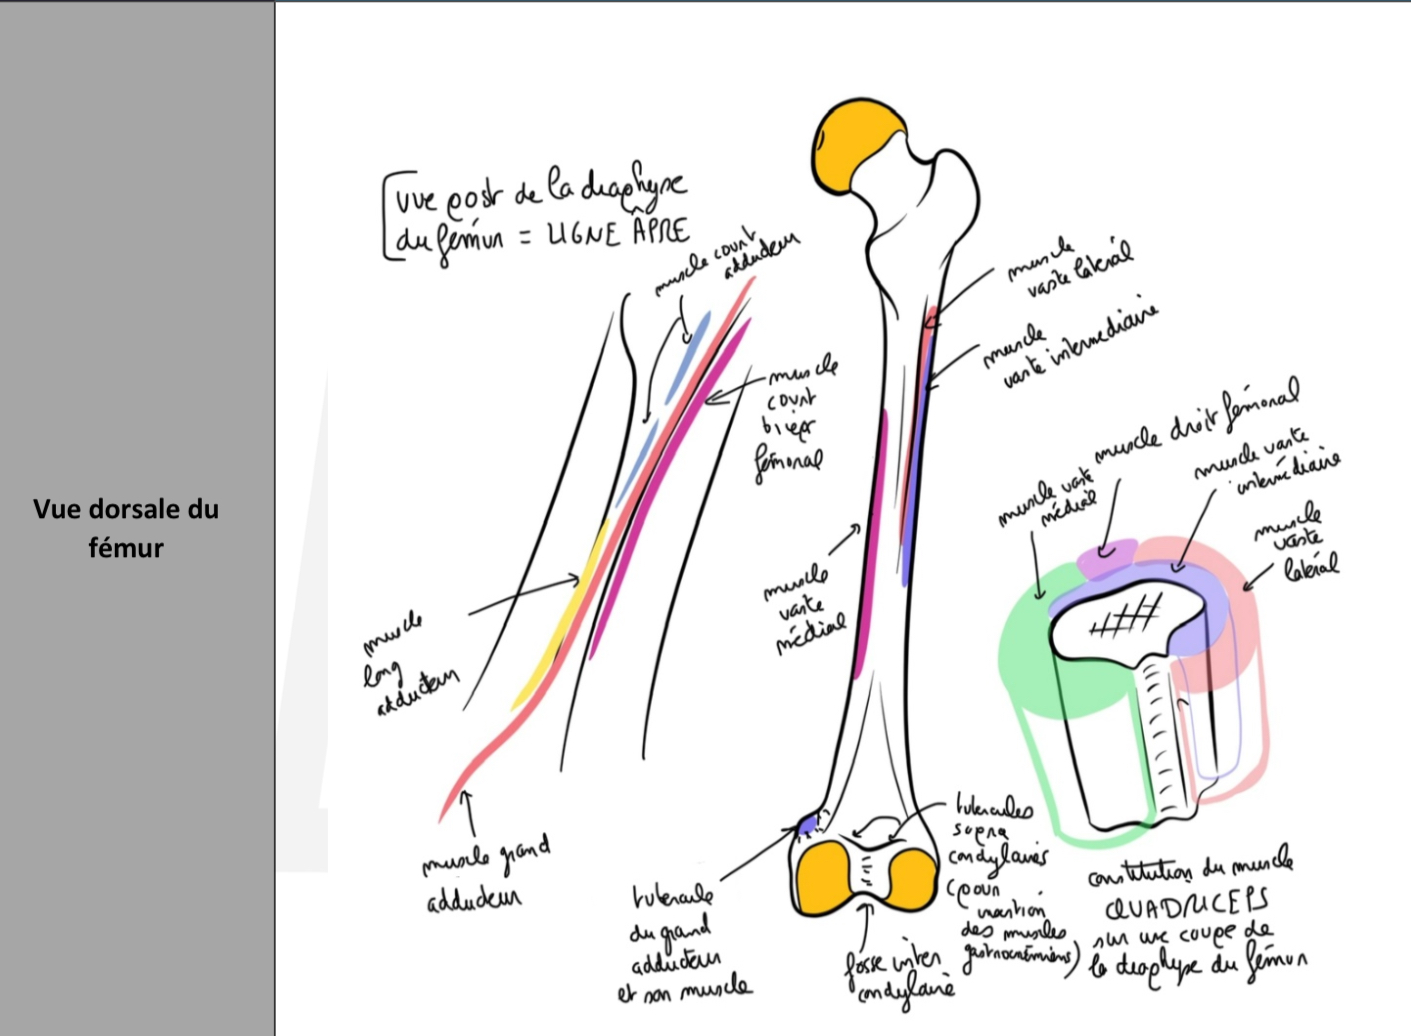 Vue dorsale du
fémur
vue post de la diaphyse
du fémur = LIGNE ÂPRE
muscle court
adducteur
muscle
court
bicep
fémoral
muscle
long
adducteur
muscle grand
adducteur
muscle
vaste latéral
muscle
vaste intermediaire
muscle
vaste
médial
tubercule
du grand
adducteur
et son muscle
fosse inter
condylaire
tubercules
supra
condylaires
(pour
insertion
des muscles
gastrocnémiens)
muscle vaste
médial
muscle droit fémoral
muscle vaste
intermédiaire
muscle
vaste
latéral
constitution du muscle
QUADRICEPS
sur une coupe de
la diaphyse du fémur